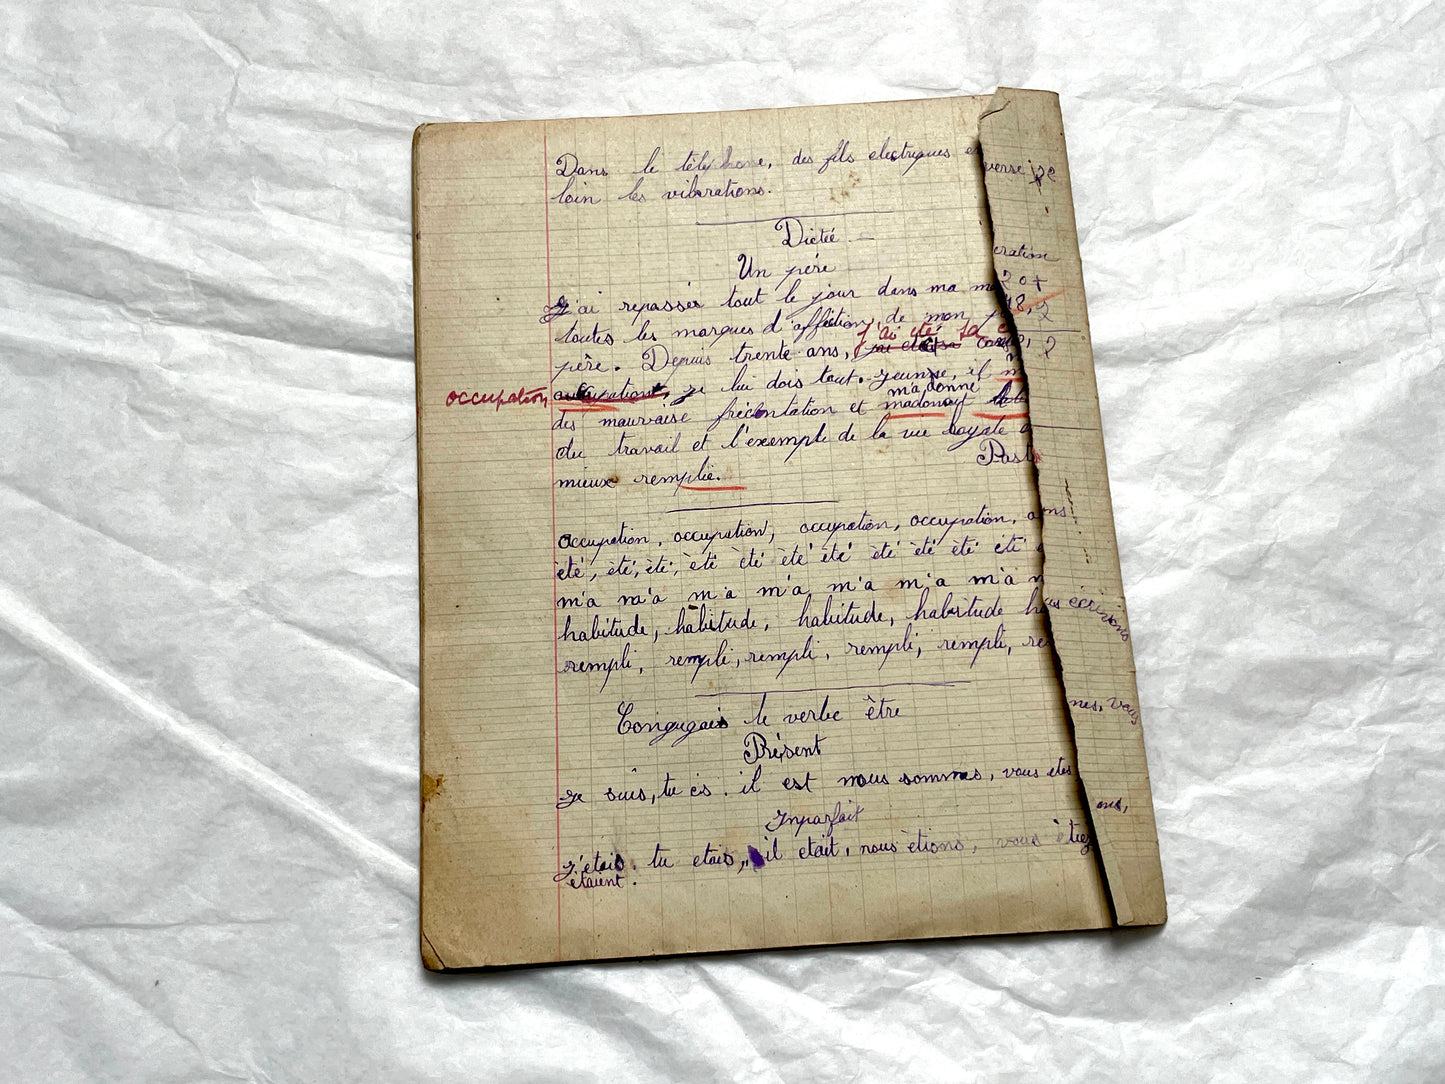 Dans le téléphone, des fils electriques
loin les vibrations.
Dictée
Un père
J'ai repassés tout le jour dans ma
toutes les marques d'affection, de mon
j'ai été sa
père. Depuis trente ans,
occupation
je lui dois tout. jeunsse, il
m'a donné
des mauvaise frécontation et madonayt
du travail et l'exemple de la vie loyale
Past
mieux remplie.
occupation, occupation, occupation, occupation,
été, été, été, été été été été été été été été
m'a m'a m'a m'a m'a m'a m'a
habitude, habitude, habitude, habitude
rempli, rempli, rempli, rempli, rempli, re
Congugais le verbe être
Présent
je suis, tu es. il est nous sommes, vous etes
Imparfait
j'étais. tu etais, il etait, nous étions, vous étiez
étaient.
verse
eration
20+
48,2
2
ons
écrivions
nes, vous
ons,